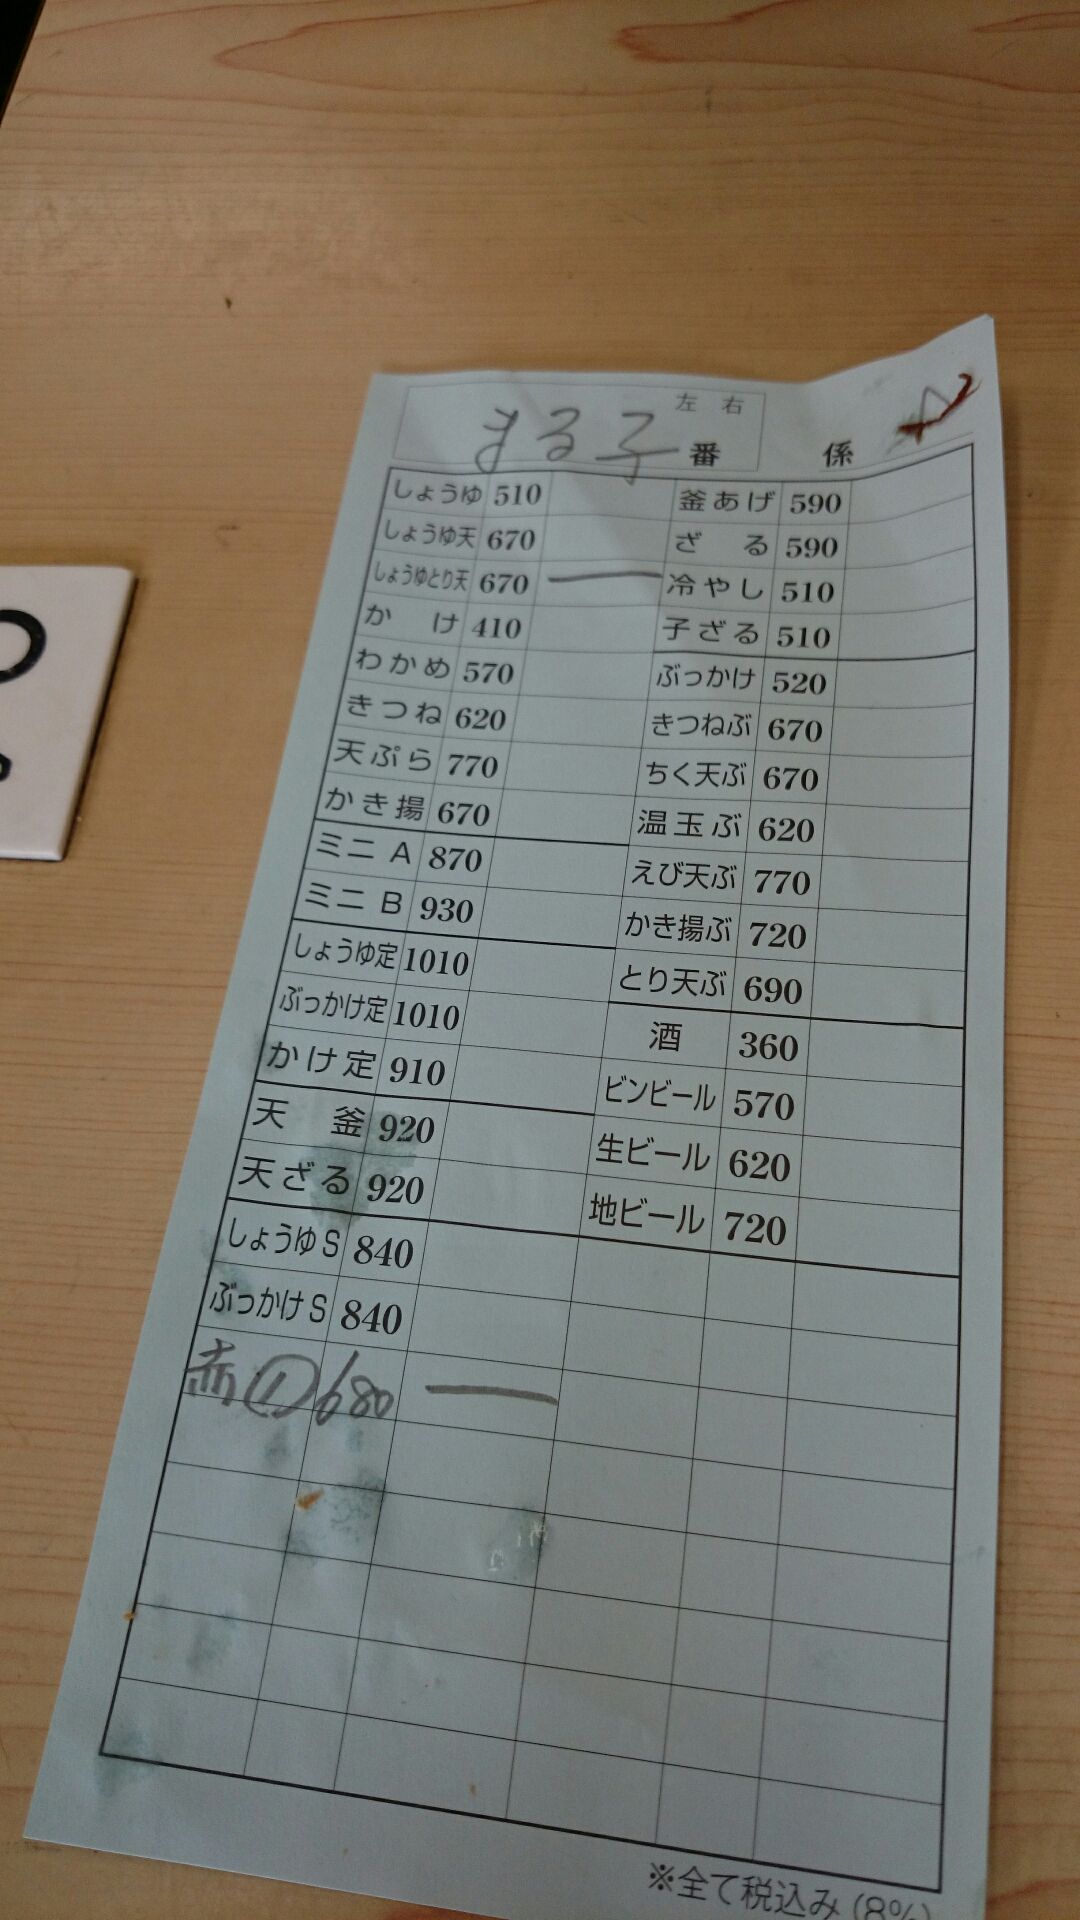 左 右
まる子 番 係
しょうゆ 510
しょうゆ天 670
しょうゆとり天 670 一
かけ 410
わかめ 570
きつね 620
天ぷら 770
かき揚 670
ミニA 870
ミニB 930
しょうゆ定 1010
ぶっかけ定 1010
かけ定 910
天釜 920
天ざる 920
しょうゆS 840
ぶっかけS 840
赤① 680 一
釜あげ 590
ざる 590
冷やし 510
子ざる 510
ぶっかけ 520
きつねぶ 670
ちく天ぶ 670
温玉ぶ 620
えび天ぶ 770
かき揚ぶ 720
とり天ぶ 690
酒 360
ビンビール 570
生ビール 620
地ビール 720
※全て税込み(8%)